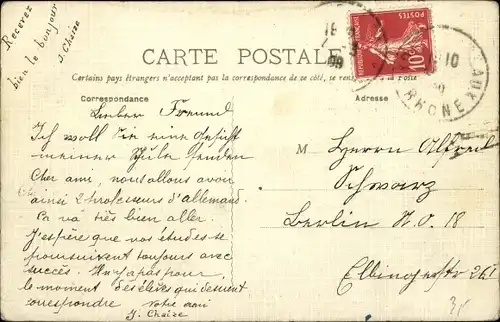 Recevez
bien le bonjour
J. Chaize
CARTE POSTALE
Certains pays étrangers n'acceptant pas la correspondance de ce côté, se à la Poste
Correspondance
Adresse
POSTES
10c
RHONE
Lieber Freund
Ich woll Sie eine Ansicht
meiner Schule senden
Cher ami, nous allons avoir
ainsi 2 professeurs d'allemand.
Ça va très bien aller.
J'espère que nos études se
poursuivent toujours avec
succès. Il n'y a pas pour
le moment d'élèves qui désirent
correspondre Votre ami
J. Chaize
M Herrn Alfred
Schwarz
Berlin N.O. 18
Elbingerstr 26